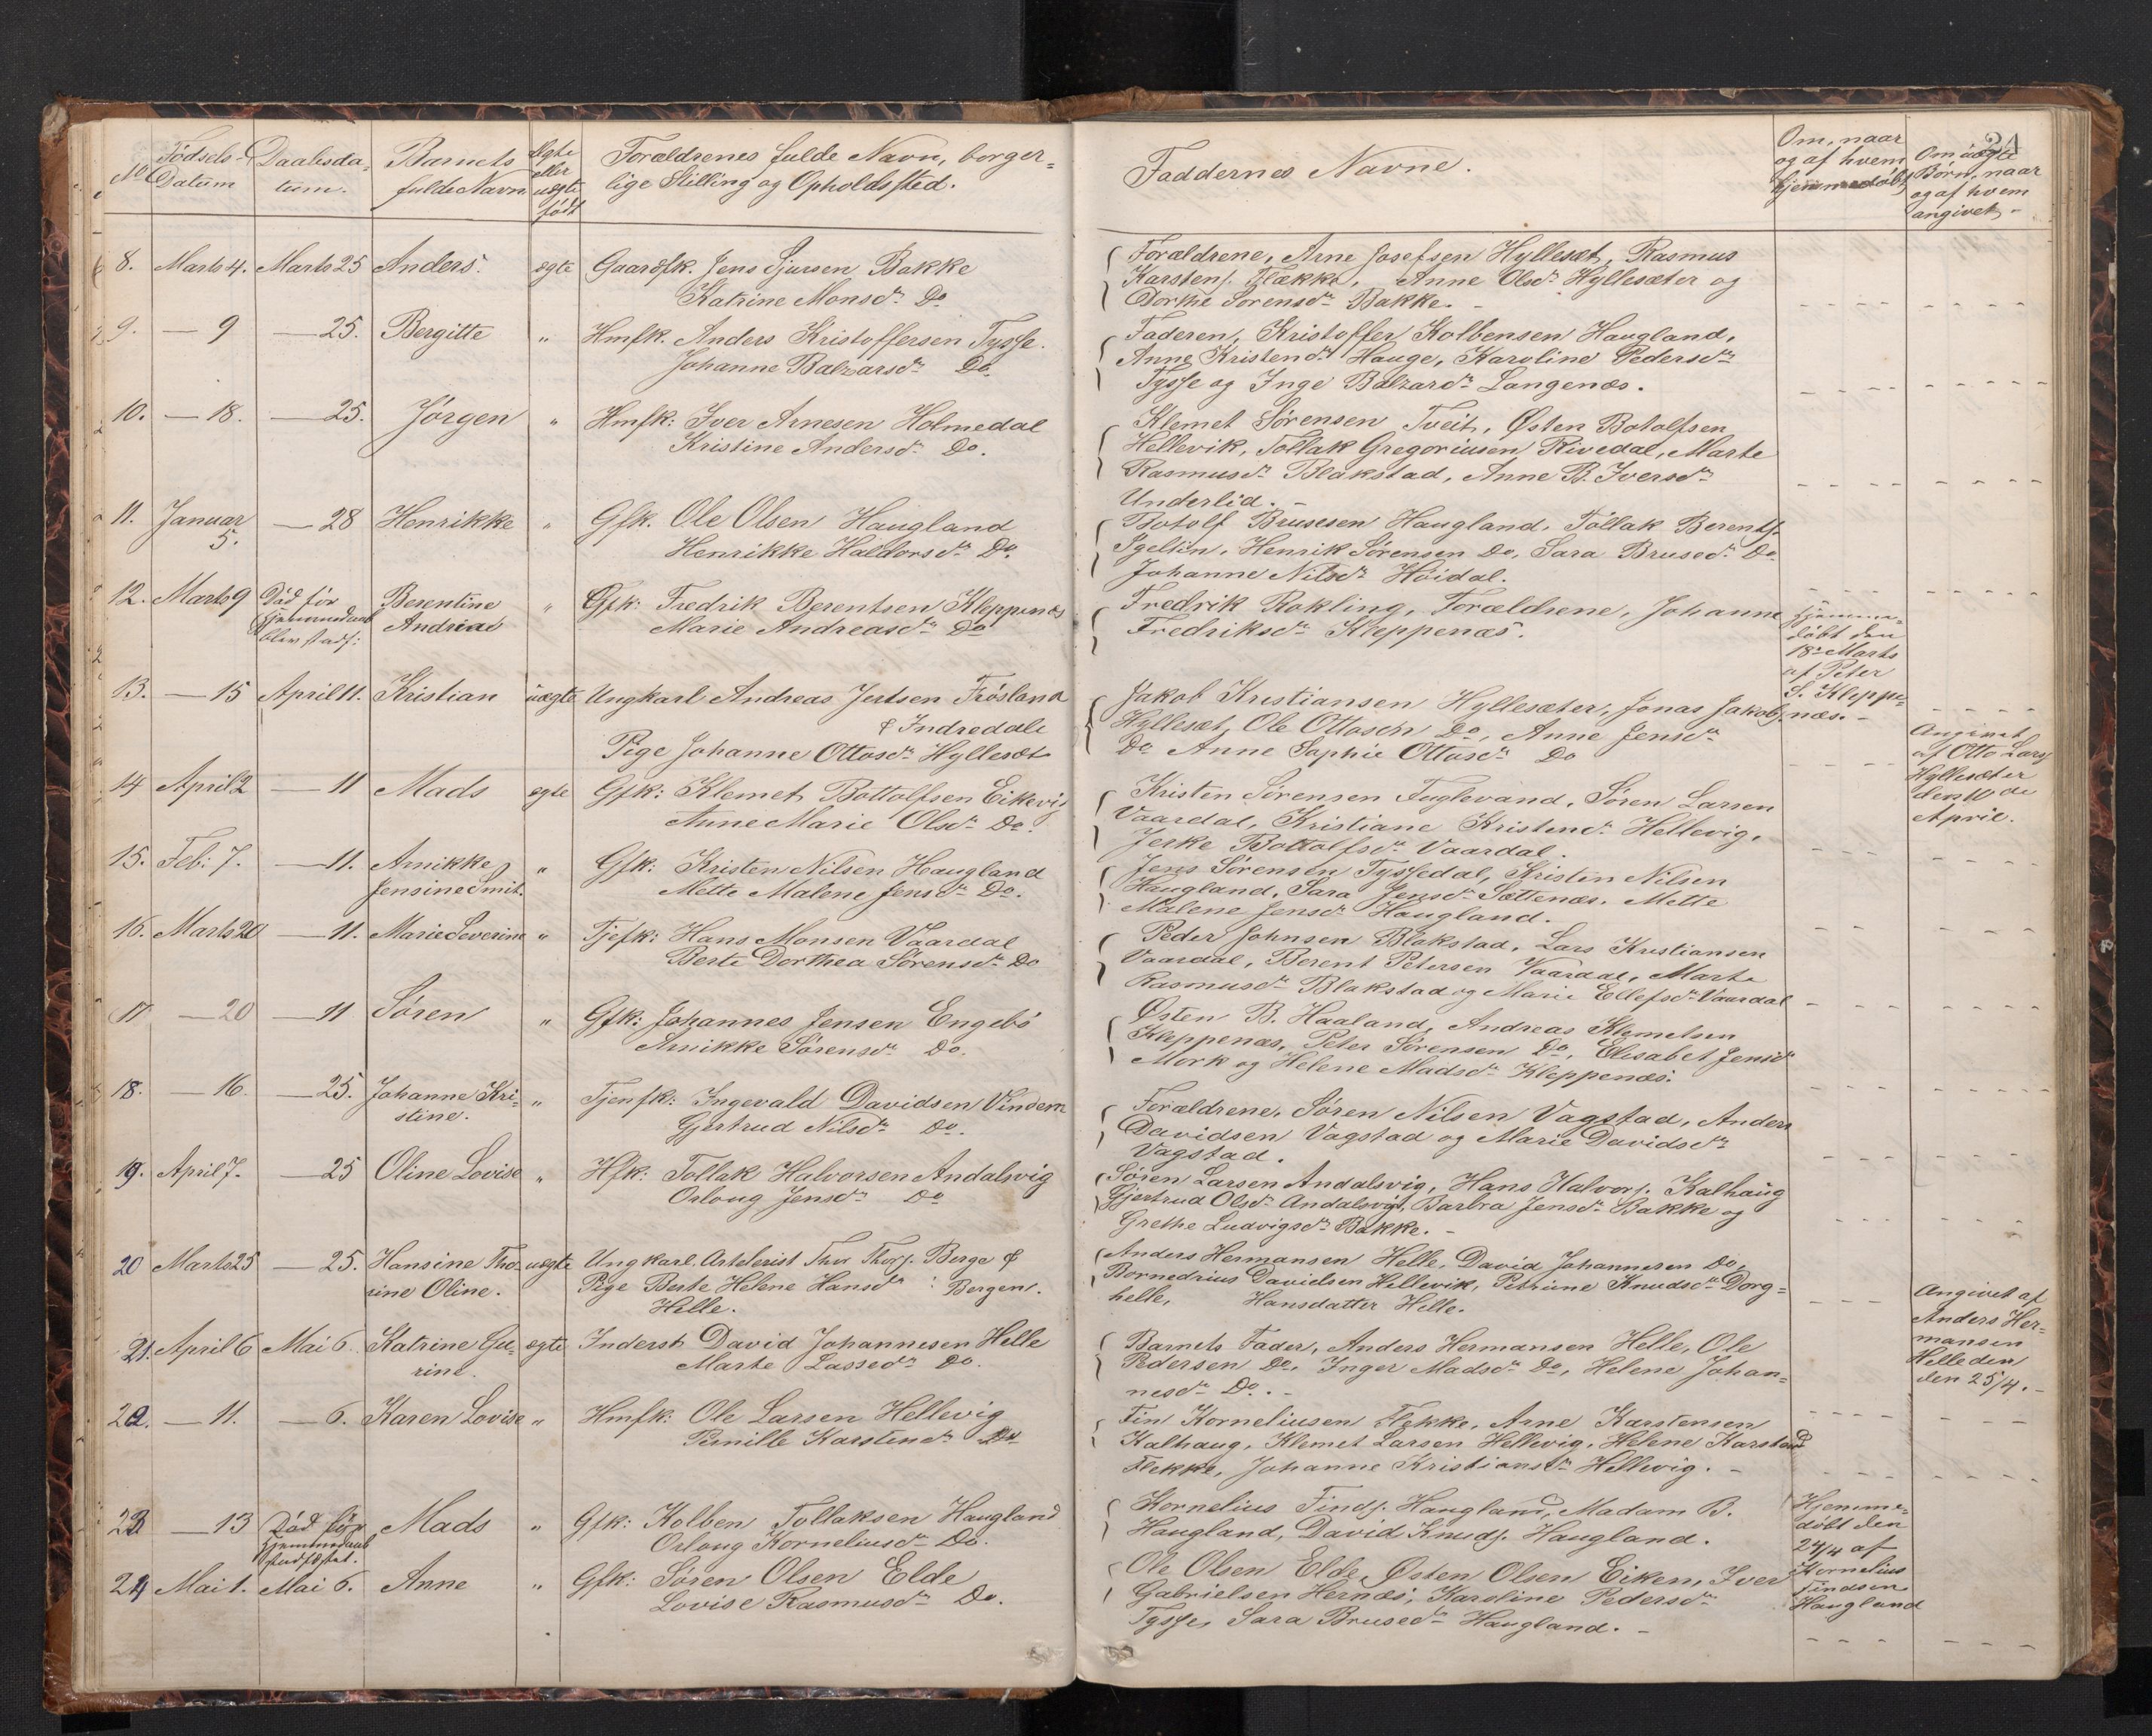 24
No
Fødsels-
Datum
Daabsda-
tum.
Barnets
fulde Navn
Ægte
eller
uægte
født
Forældrenes fulde Navn, borger-
lige Stilling og Opholdssted.
Faddernes Navne.
Om, naar
og af hvem
hjemmedøbt
Om uægte
Børn, naar
og af hvem
angivet.
8. Marts 4. Marts 25 Anders. ægte Gaardfk. Jens Sjursen Bakke
Katrine Monsdr. Do
Forældrene, Arne Josefsen Hyllesæt, Rasmus
Karstens. Flække, Anne Olsdr. Hyllesæter og
Dorthe Sørensdr. Bakke.
9. — 9 — 25. Bergitte " Hmfk. Anders Kristoffersen Tysse.
Johanne Balzarsdr. Do.
Faderen, Kristoffer Kolbensen Haugland,
Anne Kristendr. Hauge, Karoline Pedersdr.
Tysse og Inge Balzardr. Langenæs.
10. — 18. — 25. Jørgen " Hmfk: Iver Arnesen Holmedal
Kristine Andersdr. Do.
Klemet Sørensen Tveit, Østen Botolfsen
Hellevik, Tollak Gregoriusen Rivedal, Marte
Rasmusdr. Blakstad, Anne B. Iversdr.
Underlid.
11. Januar
5.
— 28 Henrikke " Gfk. Ole Olsen Haugland
Henrikke Haldorsdr. Do.
Botolf Brusesen Haugland, Tollak Berents.
Igelien, Henrik Sørensen Do, Sara Brusedr. Do
Johanne Nilsdr. Høidal.
12. Marts 9 Død før
Hjemmedaab
blev stadf:
Berentine
Andrea
" Gfk: Fredrik Berentsen Kleppenæs
Marie Andreasdr. Do
Fredrik Rokling, Forældrene, Johanne
Fredriksdr. Kleppenæs.
Hjemme-
døbt den
18. Marts
af Peter
S. Kleppe-
næs.
13. — 15 April 11. Kristian uægte Ungkarl Andreas Jertsen Frøsland
& Indredale
Pige Johanne Ottosdr. Hyllesæt
Jakob Kristiansen Hyllesæter, Jonas Jakobs.
Hyllesæt, Ole Ottosen Do, Anne Jensdr.
Do Anne Sophie Ottosdr. Do
Angivet
af Otto Lars.
Hyllesæter
den 10de
April.
14 April 2 — 11 Mads ægte Gfk: Klemet Bottolfsen Eikevig
Anne Marie Olsdr. Do.
Kristen Sørensen Fuglevand, Søren Larsen
Vaardal, Kristiane Kristendr. Hellevig,
Jerke Bottolfsdr. Vaardal.
15. Feb: 7. — 11. Anikke
Jensine Smit.
" Gfk: Kristen Nilsen Haugland
Mette Malene Jensdr. Do.
Jens Sørensen Tyssedal, Kristen Nilsen
Haugland, Sara Jensdr. Sættenæs. Mette
Malene Jensdr. Haugland.
16. Marts 20 — 11. Marie Severine " Tjefk: Hans Monsen Vaardal
Berte Dorthea Sørensdr. Do
Peder Johnsen Blakstad, Lars Kristiansen
Vaardal, Berent Petersen Vaardal, Marte
Rasmusdr. Blakstad og Marie Ellefsdr. Vaardal
17 — 20 — 11 Søren " Gfk: Johannes Jensen Engebø
Anikke Sørensdr. Do.
Østen B. Haaland, Andreas Klemetsen
Kleppenæs, Peter Sørensen Do, Elisabet Jensdr.
Mork og Helene Madsdr. Kleppenæs.
18. — 16. — 25. Johanne Kri-
stine.
" Tjenfk: Ingevald Davidsen Vindem
Gjertrud Nilsdr. Do.
Forældrene, Søren Nilsen Vagstad, Anders
Davidsen Vagstad og Marie Davidsdr.
Vagstad.
19. April 7. — 25 Oline Lovise " Hfk: Tollak Halvorsen Andalsvig
Orloug Jensdr. Do
Søren Larsen Andalsvig, Hans Halvors. Kalhaug
Gjertrud Olsdr. Andalsvig, Barbra Jensdr. Bakke og
Grethe Ludvigsdr. Bakke.
20 Marts 25 — 25. Hansine Tho-
rine Oline.
uægte Ungkarl. Artelerist Thor Thors. Berge &
Pige Berte Helene Hansdr. : Bergen.
Helle.
Anders Hermansen Helle, David Johannesen Do,
Bornedrius Davidsen Hellevik, Petrine Knudsdr. Dorg-
helle, Hansdatter Helle.
Angivet af
Anders Her-
mansen
Helle den
den 25/4.
21. April 6 Mai 6. Katrine Gu-
rine.
ægte Inderst David Johannesen Helle
Marte Lassedr. Do.
Barnets Fader, Anders Hermansen Helle, Ole
Pedersen Do, Inger Madsdr. Do, Helene Johan-
nesdr. Do.
22. — 11. — 6. Karen Lovise " Hmfk: Ole Larsen Hellevig
Pernille Karstendr. Do
Fin Korneliusen Flekke, Arne Karstensen
Kalhaug, Klemet Larsen Hellevig, Helene Karstend
Flekke, Johanne Kristiansdr. Hellevig.
23 — 13 Død før
Hjemmedaab
stadfæstet.
Mads " Gfk: Kolben Tollaksen Haugland
Orloug Korneliusdr. Do.
Kornelius Finds. Haugland, Madam B.
Haugland, David Knuds. Haugland.
Hjemme-
døbt den
24/4 af
Kornelius
Findsen
Haugland
24 Mai 1. Mai 6. Anne " Gfk: Søren Olsen Elde
Lovise Rasmusdr. Do.
Ole Olsen Elde, Østen Olsen Eiken, Iver
Gabrielsen Hernæs, Karoline Pedersdr.
Tysse, Sara Brusedr. Haugland.